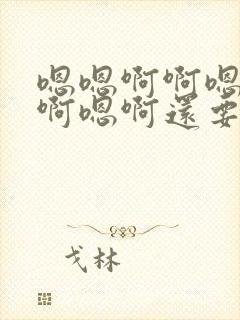 嗯嗯啊啊嗯
啊嗯啊還要
戈林